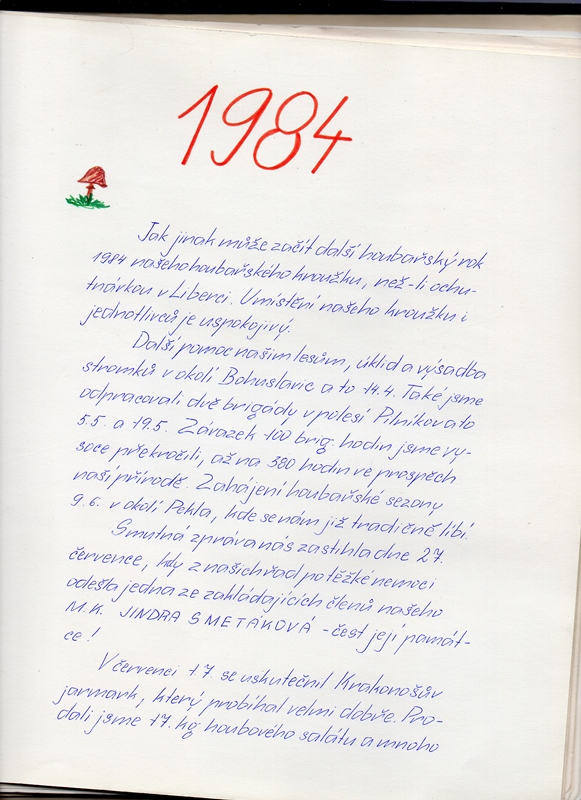 1984
Jak jinak může začít další houbařský rok
1984 našeho houbařského kroužku, než-li ochu-
tnávkou v Liberci. Umístění našeho kroužku i
jednotlivců je uspokojivý.
Další pomoc našim lesům, úklid a výsadba
stromků v okolí Bohuslavic a to 14.4. Také jsme
odpracovali dvě brigády v polesí Pilníkov a to
5.5. a 19.5. Závazek 100 brig. hodin jsme vy-
soce překročili, až na 380 hodin ve prospěch
naší přírodě. Zahájení houbařské sezony
9.6. v okolí Pekla, kde se nám již tradičně líbí.
Smutná zpráva nás zastihla dne 27.
července, kdy z našich řad po těžké nemoci
odešla jedna ze zakládajících členů našeho
M.K. JINDRA SMETÁKOVÁ - čest její památ-
ce!
V červenci 17. se uskutečnil Krakonošův
jarmark, který probíhal velmi dobře. Pro-
dali jsme 17. kg houbového salátu a mnoho